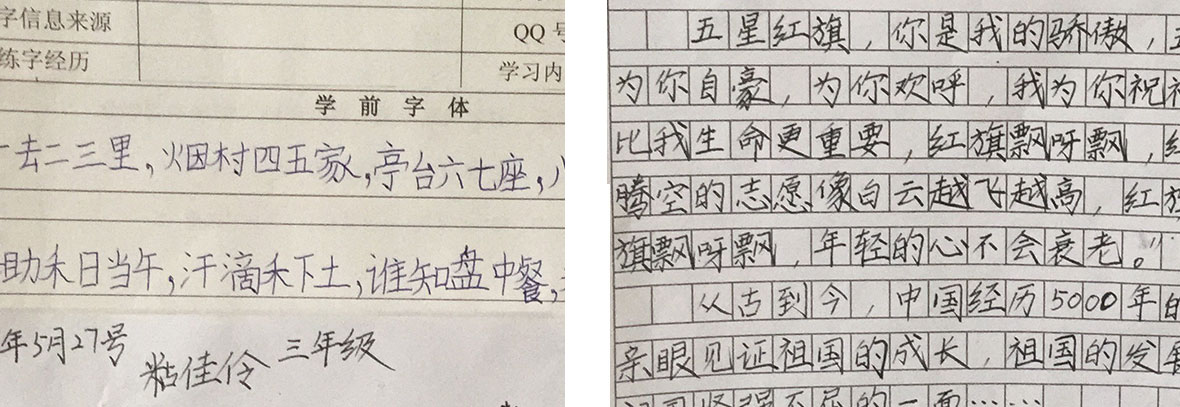 字信息来源
QQ号
练字经历
学习内
学前字体
一去二三里，烟村四五家，亭台六七座，八
助禾日当午，汗滴禾下土，谁知盘中餐，
年5月27号
粘佳伶 三年级
五星红旗，你是我的骄傲，五
为你自豪，为你欢呼，我为你祝福
比我生命更重要，红旗飘呀飘，红
腾空的志愿像白云越飞越高，红旗
旗飘呀飘，年轻的心不会衰老。"
从古到今，中国经历5000年的
亲眼见证祖国的成长，祖国的发展
不屈的一面……